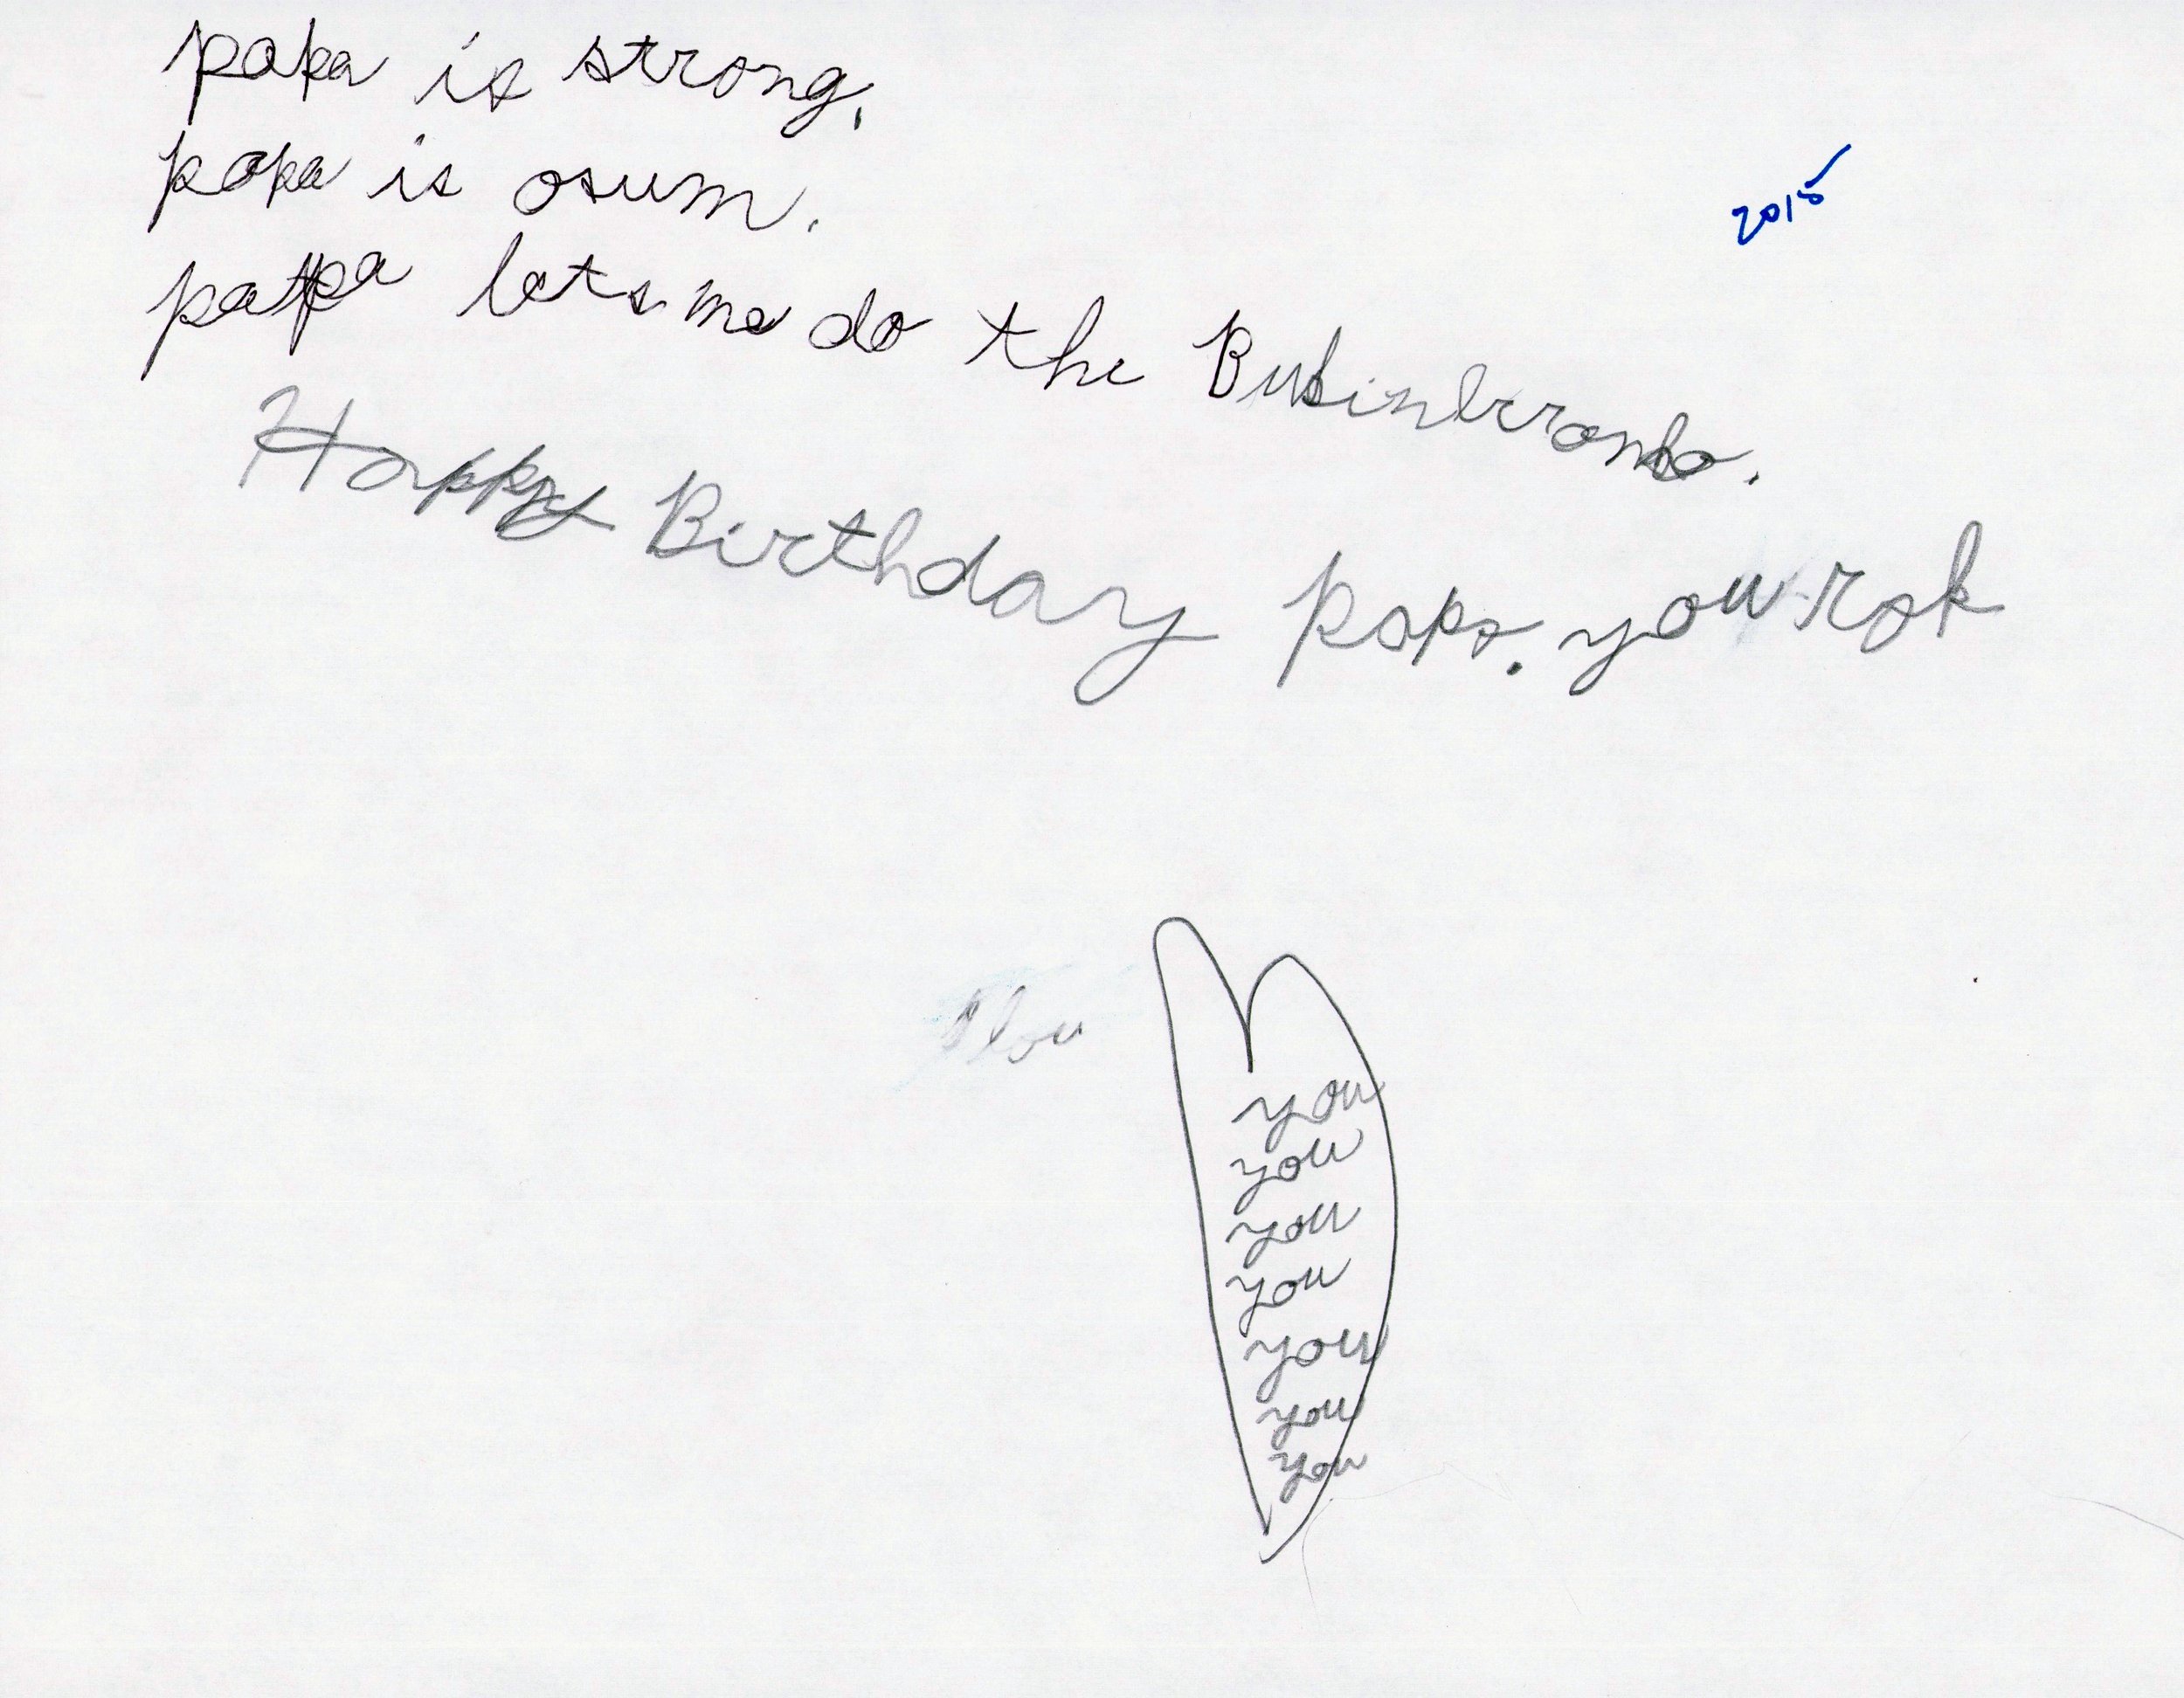 papa is strong.
papa is osum.
2015
papa lets me do the
Happy Birthday papa. you rok
I lov
you
you
you
you
you
you
you